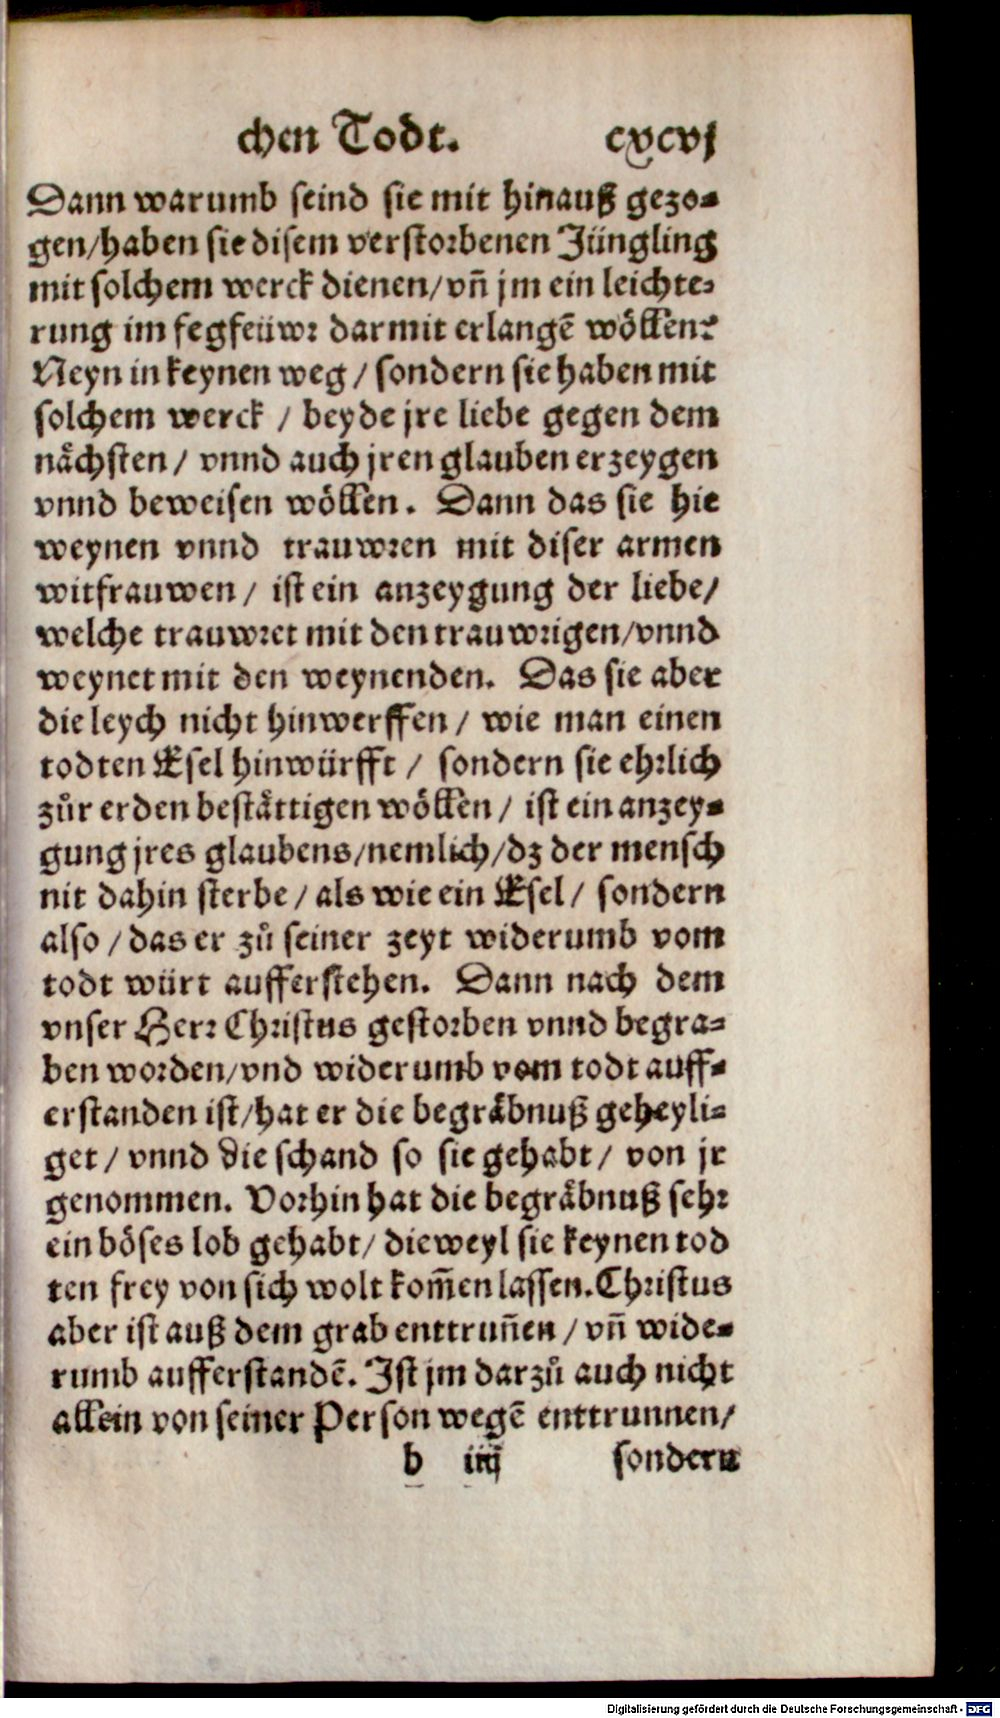 chen Todt. cxcvj
Dann warumb seind sie mit hinauß gezo-
gen/haben sie disem verstorbenen Jüngling
mit solchem werck dienen/vñ jm ein leichte-
rung im fegfeüwr darmit erlangẽ wöllen?
Neyn in keynen weg / sondern sie haben mit
solchem werck / beyde jre liebe gegen dem
nächsten / vnnd auch jren glauben erzeygen
vnnd beweisen wöllen. Dann das sie hie
weynen vnnd trauwren mit diser armen
witfrauwen / ist ein anzeygung der liebe/
welche trauwret mit den trauwrigen/vnnd
weynet mit den weynenden. Das sie aber
die leych nicht hinwerffen / wie man einen
todten Esel hinwürfft / sondern sie ehrlich
zůr erden bestättigen wöllen / ist ein anzey-
gung jres glaubens/nemlich/dz der mensch
nit dahin sterbe / als wie ein Esel / sondern
also / das er zů seiner zeyt widerumb vom
todt würt aufferstehen. Dann nach dem
vnser Herr Christus gestorben vnnd begra-
ben worden/vnd widerumb vom todt auff-
erstanden ist/hat er die begräbnuß geheyli-
get / vnnd die schand so sie gehabt / von jr
genommen. Vorhin hat die begräbnuß sehr
ein böses lob gehabt/ dieweyl sie keynen tod
ten frey von sich wolt kom̃en lassen. Christus
aber ist auß dem grab enttrun̄en / vñ wide-
rumb aufferstandẽ. Ist jm darzů auch nicht
allein von seiner Person wegẽ enttrunnen/
b iiij sondern
Digitalisierung gefördert durch die Deutsche Forschungsgemeinschaft - DFG